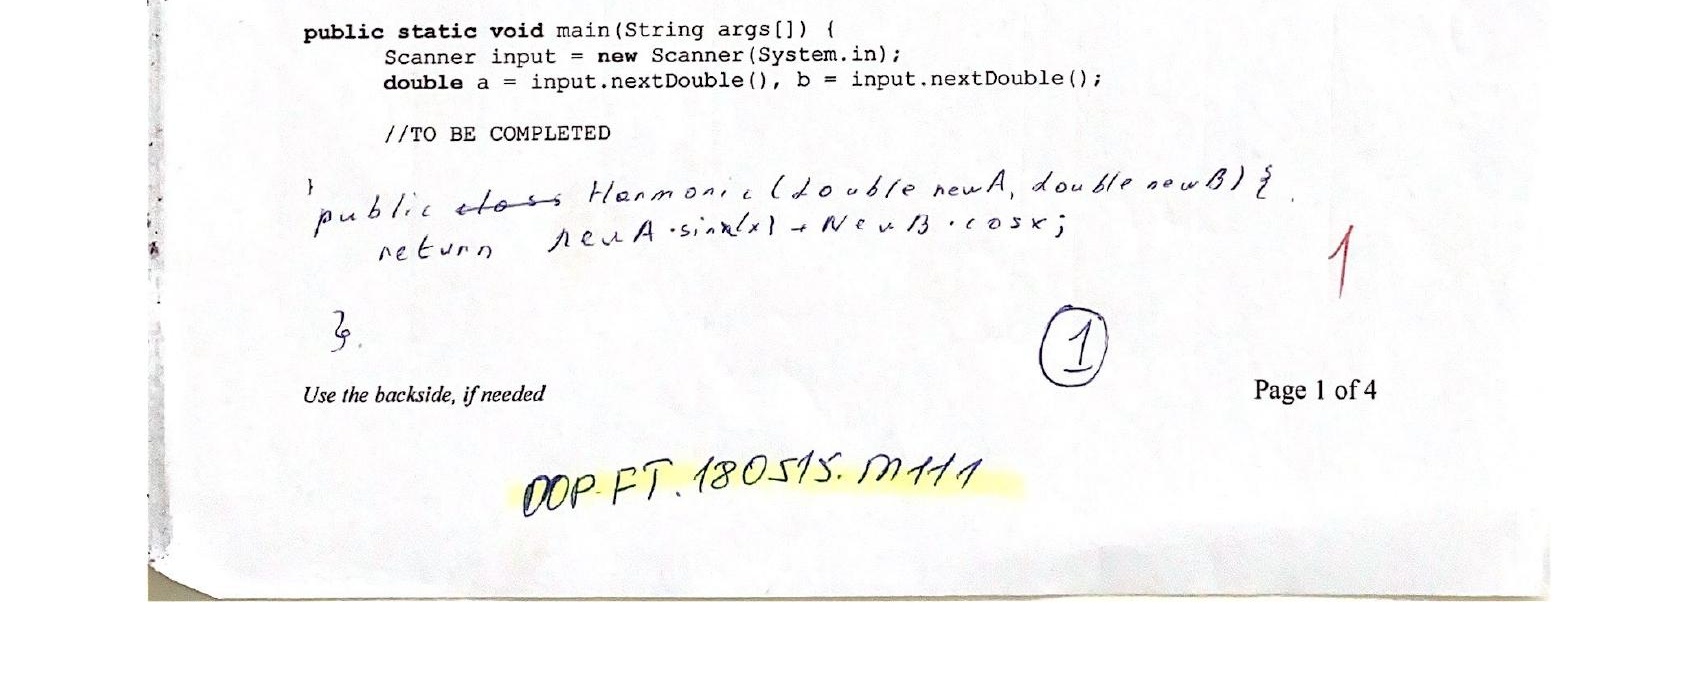 public static void main(String args[]) {
Scanner input = new Scanner(System.in);
double a = input.nextDouble(), b = input.nextDouble();
//TO BE COMPLETED
}
public class Harmonic (double newA, double newB) {
return newA·sin(x) + NewB·cosx;
}.
1
1
Use the backside, if needed
Page 1 of 4
OOP-FT.180515.M111